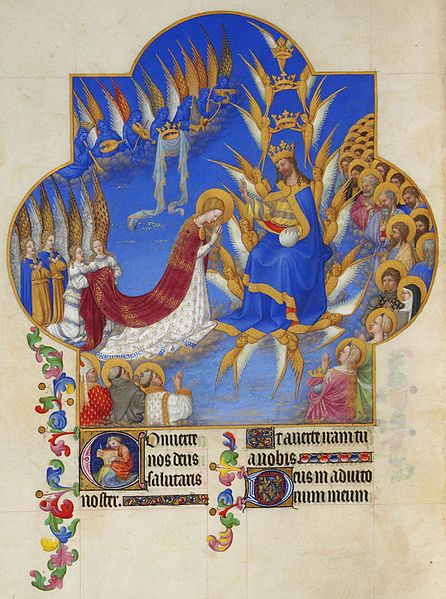 Conuerte
nos deus
salutaris
noster.
Et auerte iram tu
a anobis.
Deus in adiuto
rium meum